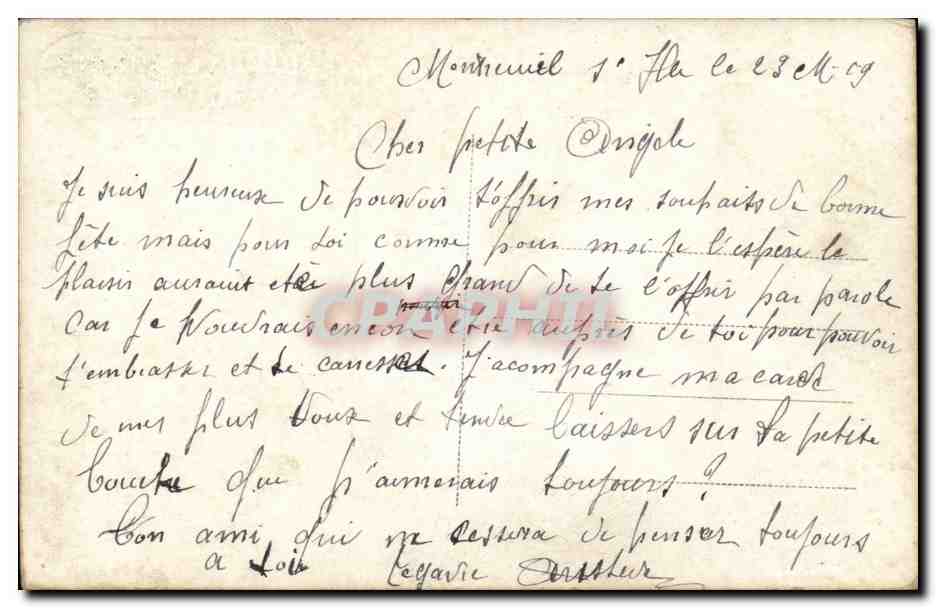 Montreuil s. Ille le 23 M. 09
Cher petite Angele
Je suis heureux de pouvoir t'offrir mes souhaits de bonne
fête mais pour toi comme pour moi je l'espère le
plaisir aurait etée plus Grand de te l'offrir par parole
car Je Voudrais encore être auprès de toi pour pouvoir
t'embrasser et te caresser. J'acompagne ma carde
de mes plus doux et tendre baissers sur ta petite
bouche que j'aimerais toujours?
Ton ami qui ne cessera de penser toujours
a toi